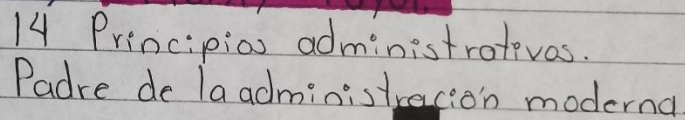 14 Principios administrativos.
Padre de la administración moderna.